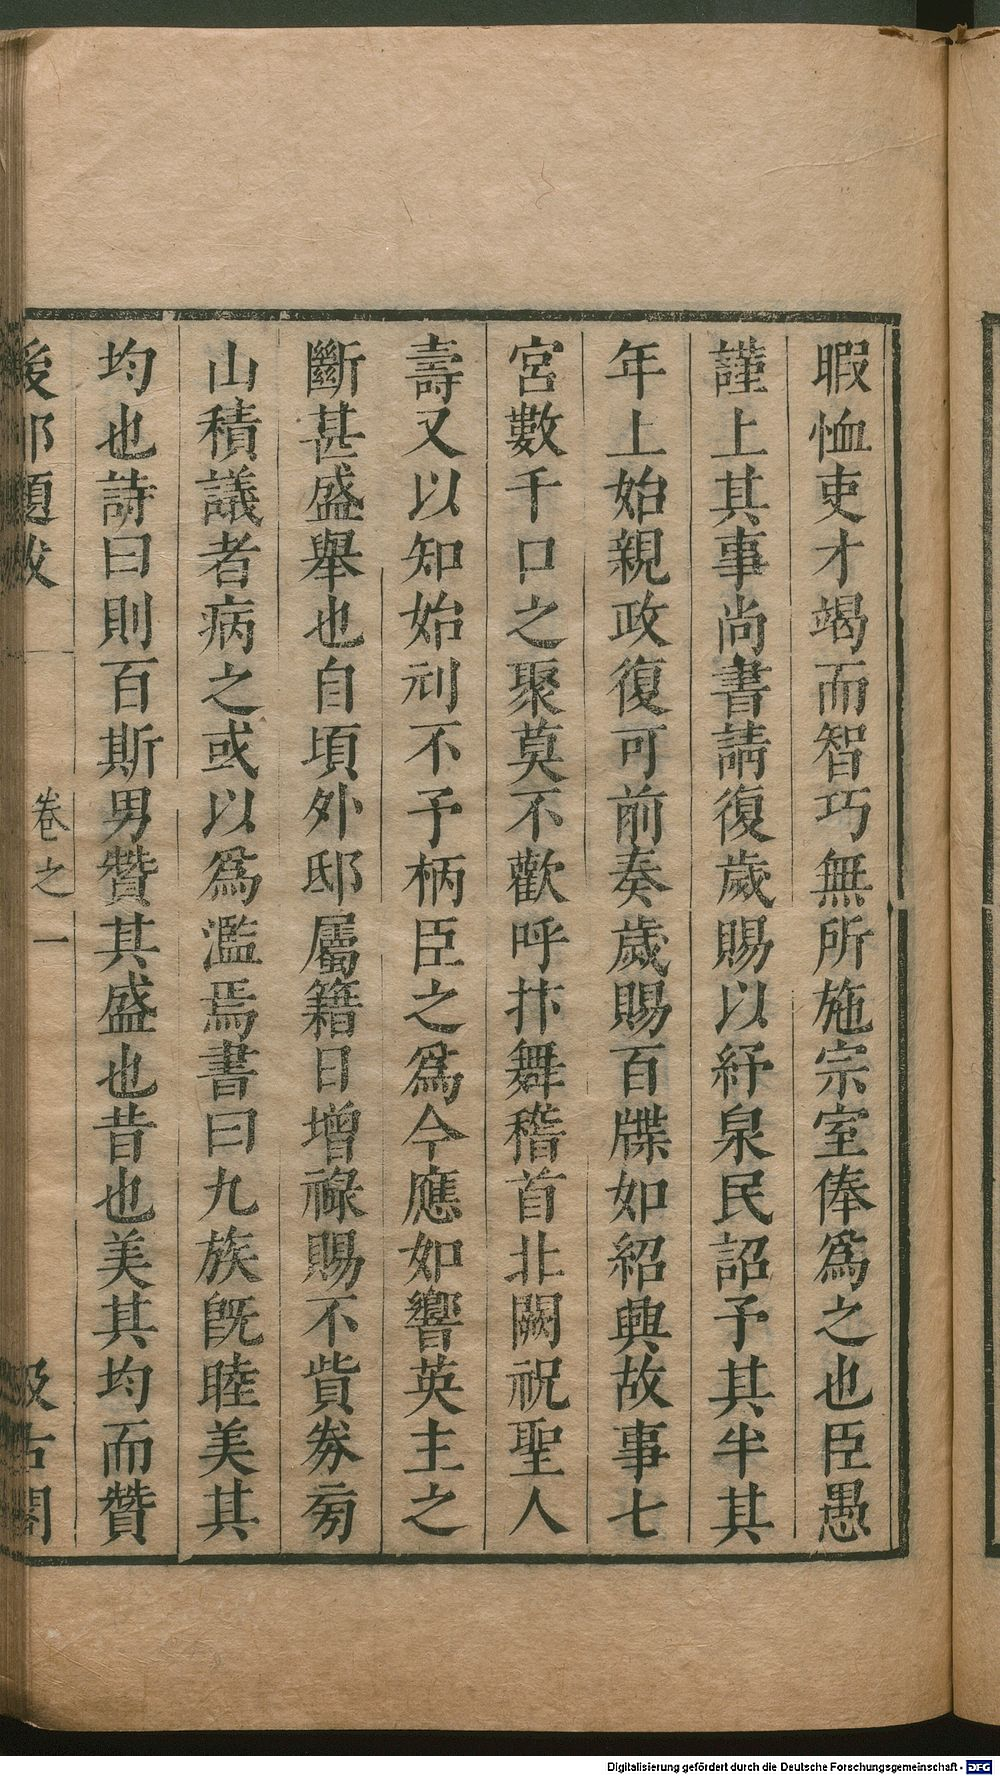 暇恤吏才竭而智巧無所施宗室俸爲之也臣愚
謹上其事尚書請復歲賜以紓泉民詔予其半其
年上始親政復可前奏歲賜百牒如紹興故事七
宮數千口之聚莫不歡呼抃舞稽首北闕祝聖人
壽又以知始刓不予柄臣之爲今應如響英主之
斷甚盛舉也自頃外邸屬籍日增祿賜不貲券旁
山積議者病之或以爲濫焉書曰九族旣睦美其
均也詩曰則百斯男贊其盛也昔也美其均而贊
後邨題跋 卷之一 汲古閣
Digitalisierung gefördert durch die Deutsche Forschungsgemeinschaft - DFG